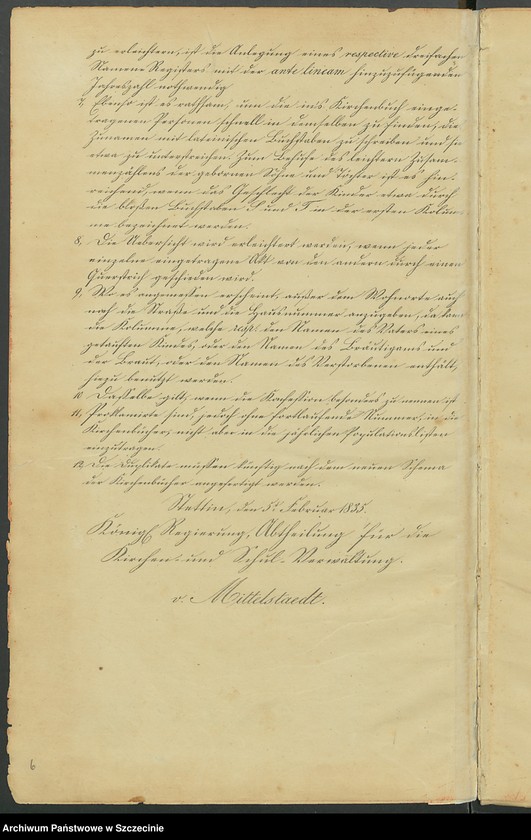 zu erleichtern, ist die Anlegung eines respective dreifachen
Namens Registers mit der ante lineam hinzuzufügenden
Jahreszahl nothwendig
7, Ebenso ist es rathsam, um die ins Kirchenbuch einge-
tragenen Personen schnell in demselben zu finden, die
Zunamen mit lateinischen Buchstaben zu schreiben und sie
etwa zu unterstreichen. Zum Behufe des leichtern Zusam-
menzählens der gebornen Söhne und Töchter ist es hin-
reichend, wenn das Geschlecht der Kinder etwa durch
die bloßen Buchstaben S und T in der ersten Kolum-
ne bezeichnet werden.
8, Die Uebersicht wird erleichtert werden, wenn jeder
einzelne eingetragene Akt von den andern durch einen
Querstrich geschieden wird.
9, Wo es angemessen erscheint, außer dem Wohnorte auch
noch die Straße und die Hausnummer anzugeben, da kann
die Kolumne, welche resp. den Namen des Vaters eines
getauften Kindes, oder den Namen des Bräutigams und
der Braut, oder den Namen des Verstorbenen enthält,
hiezu benutzt werden.
10, Dasselbe gilt, wenn die Konfession besonders zu nennen ist
11, Proklamirte sind, jedoch ohne fortlaufende Nummer, in die
Kirchenbücher, nicht aber in die jährlichen Populationslisten
einzutragen.
12, Die Duplikate müssen künftig nach dem neuen Schema
der Kirchenbücher angefertigt werden.
Stettin, den 5t Februar 1835.
Königl Regierung, Abtheilung für die
Kirchen- und Schul-Verwaltung.
v. Mittelstaedt.
6
Archiwum Państwowe w Szczecinie